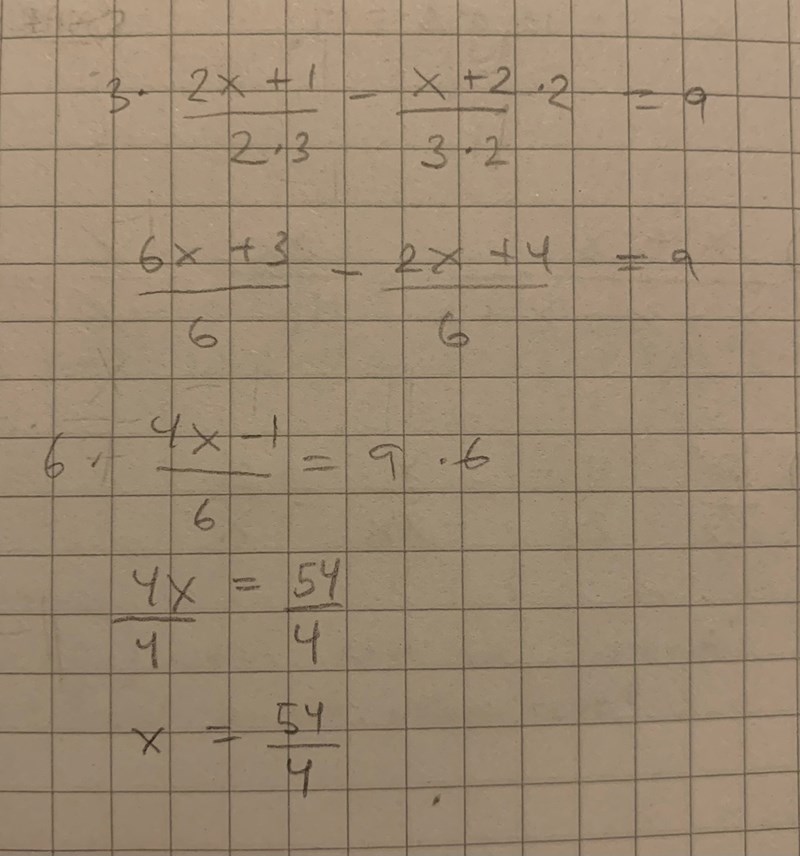 3· (2x + 1)/(2·3) - (x + 2)/(3·2) ·2 = 9
(6x + 3)/6 - (2x + 4)/6 = 9
6· (4x - 1)/6 = 9 ·6
4x/4 = 54/4
x = 54/4